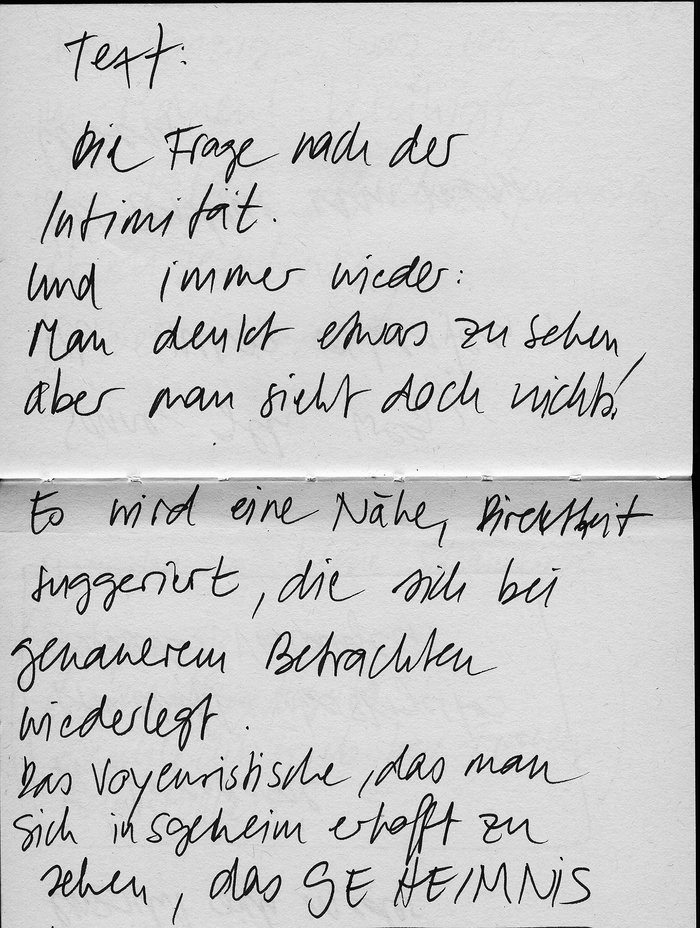 Text:
Die Frage nach der
Intimität.
Und immer wieder:
Man denkt etwas zu sehen,
aber man sieht doch nichts!
Es wird eine Nähe, Direktheit
suggeriert, die sich bei
genauerem Betrachten
wiederlegt.
Das Voyeuristische, das man
sich insgeheim erhofft zu
sehen, das GEHEIMNIS